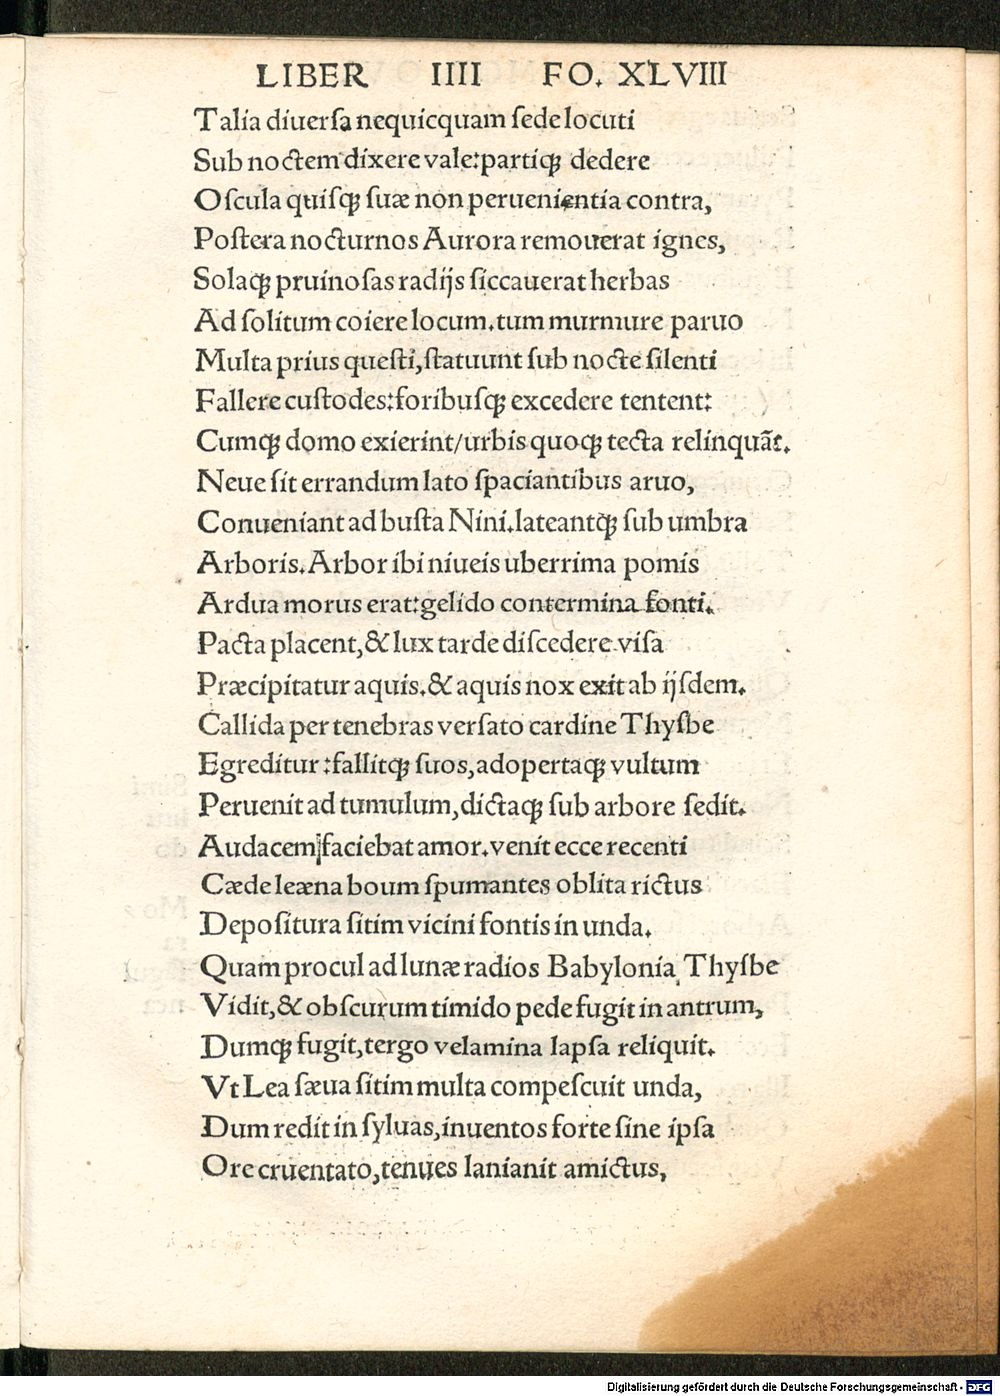 LIBER IIII FO. XLVIII
Talia diuerſa nequicquam ſede locuti
Sub noctem dixere vale:partiqꝫ dedere
Oſcula quiſqꝫ ſuæ non peruenientia contra,
Poſtera nocturnos Aurora remouerat ignes,
Solaqꝫ pruinoſas radijs ſiccauerat herbas
Ad ſolitum coiere locum.tum murmure paruo
Multa prius queſti,ſtatuunt ſub nocte ſilenti
Fallere cuſtodes:foribuſqꝫ excedere tentent:
Cumqꝫ domo exierint/urbis quoqꝫ tecta relinquãt.
Neue ſit errandum lato ſpaciantibus aruo,
Conueniant ad buſta Nini.lateantqꝫ ſub umbra
Arboris.Arbor ibi niueis uberrima pomis
Ardua morus erat:gelido contermina fonti.
Pacta placent,& lux tarde diſcedere viſa
Præcipitatur aquis.& aquis nox exit ab ijſdem.
Callida per tenebras verſato cardine Thyſbe
Egreditur:fallitqꝫ ſuos,adopertaqꝫ vultum
Peruenit ad tumulum,dictaqꝫ ſub arbore ſedit.
Audacem faciebat amor.venit ecce recenti
Cæde leæna boum ſpumantes oblita rictus
Depoſitura ſitim vicini fontis in unda.
Quam procul ad lunæ radios Babylonia Thyſbe
Vidit,& obſcurum timido pede fugit in antrum,
Dumqꝫ fugit,tergo velamina lapſa reliquit.
Vt Lea ſæua ſitim multa compeſcuit unda,
Dum redit in ſyluas,inuentos forte ſine ipſa
Ore cruentato,tenues lanianit amictus,
Digitalisierung gefördert durch die Deutsche Forschungsgemeinschaft - DFG